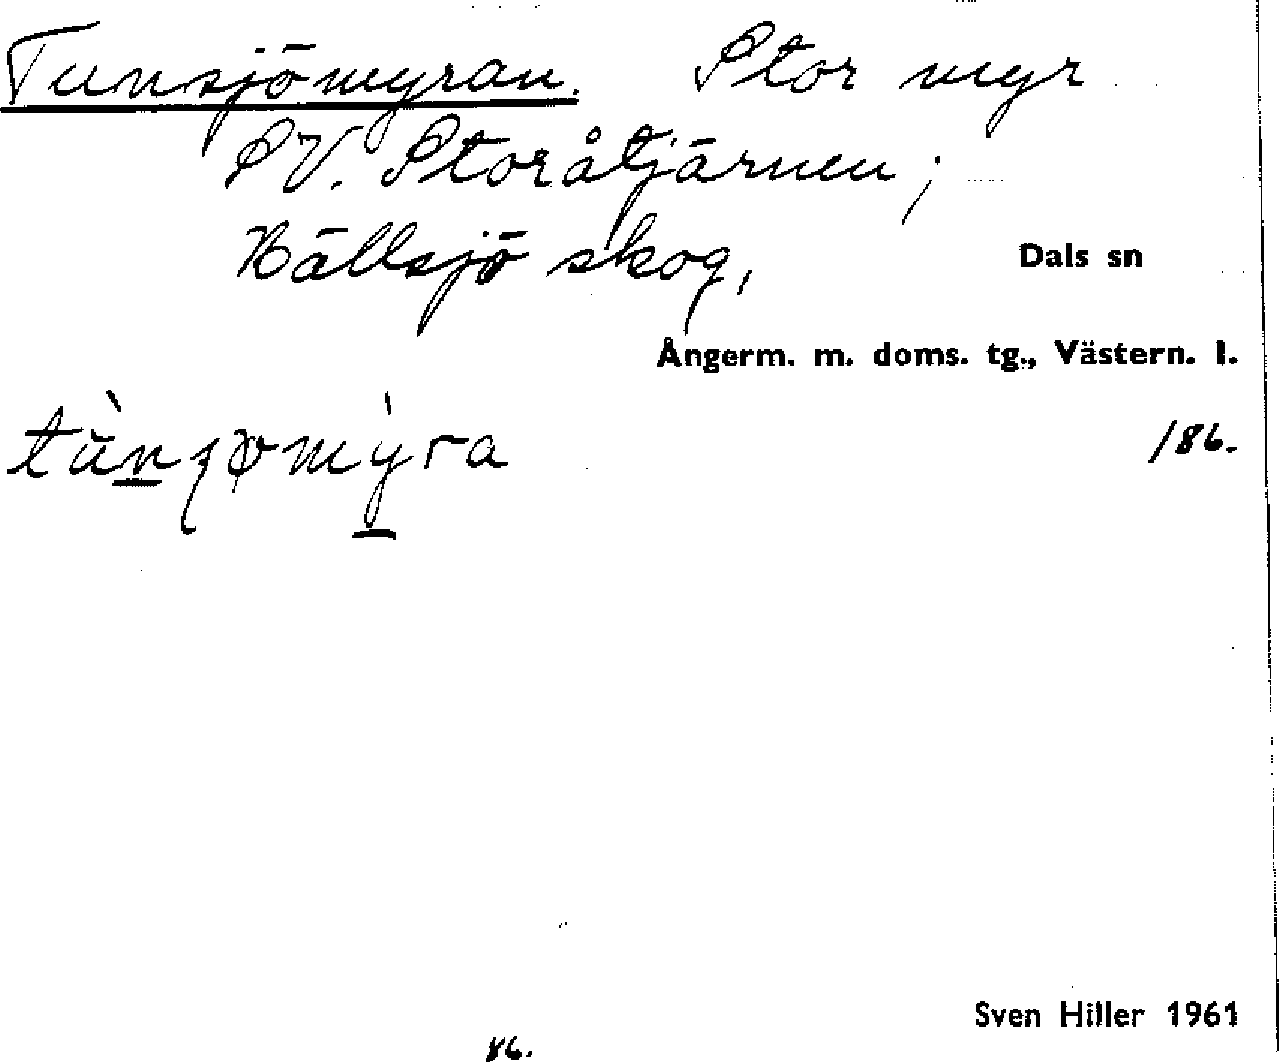 Tunsjömyran. Stor myr
SV. Storåtjärnen;
Hällsjö skog, Dals sn
Ångerm. m. doms. tg., Västern. l.
186.
Sven Hiller 1961
86.